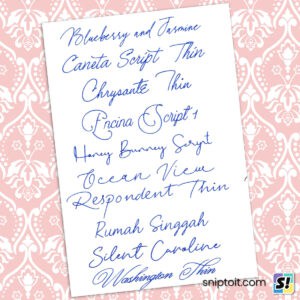 Blueberry and Jasmine
Caneta Script Thin
Chrysante Thin
Encina Script 1
Honey Bunney Script
Ocean View
Respondent Thin
Rumah Singgah
Silent Caroline
Washington Thin
sniptoit.com S!